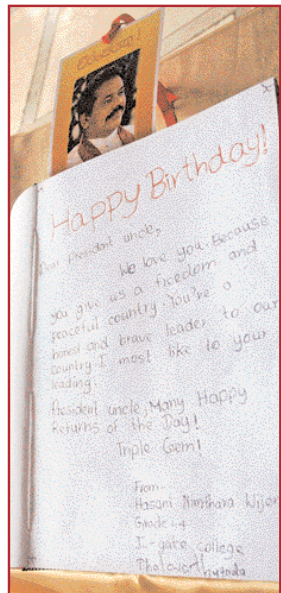 Happy Birthday!
Dear president uncle,
We love you. Because
you give us a freedom and
peaceful country. You're a
honest and brave leader to our
country. I most like to your
leading!
President uncle, Many Happy
Returns of the Day!
Triple Gem!
From-
Hasani Nimthara
Grade
I-gate college